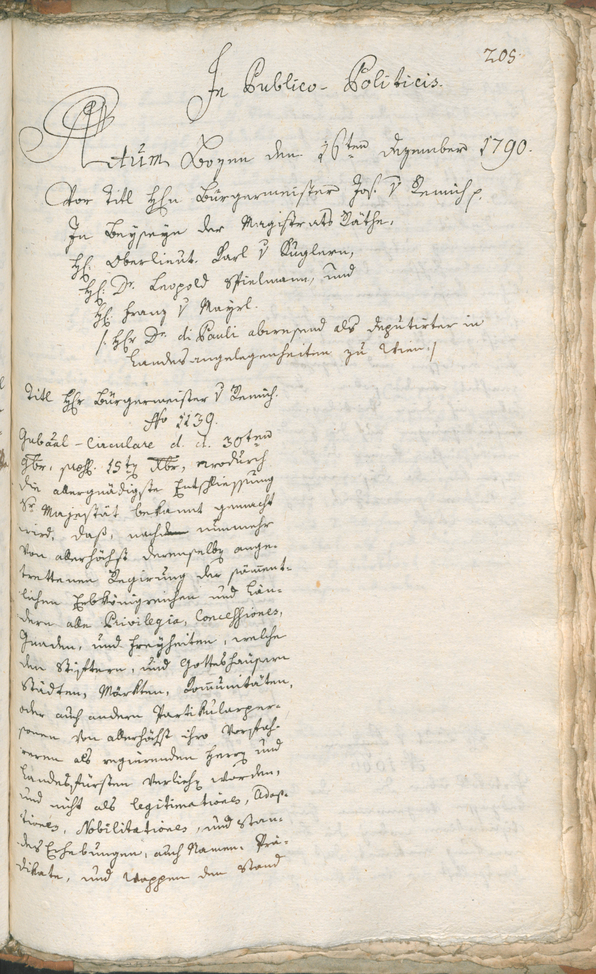 205
In Publico-Politicis.
Actum Bozen den 16ten Dezember 1790.
Vor Titl Hhn Bürgermeister Jos. v Remich p.
In Beyseyn der Magistrats Räthe,
Hh. Oberlieut. Karl v Kuglern,
Hh. Dr. Leopold Spielmann, und
Hh. Franz v Mayrl.
/: Hhr Dr. di Pauli abwesend als deputirter in
Landesangelegenheiten zu Wien :/
Titl Hhr Bürgermeister v Remich.
No 1139.
Gubāal-Circulare d. d. 30ten
9br, 15 Xbr, wodurch
die allergnädigste Entschliessung
Sr Majestät bekannt gemacht
wird, daß, nachdem nunmehr
von allerhöchst derenselbn ange-
trettenen Regirung der sāment-
lichen Erbkönigreichen und Län-
dern alle Privilegia, Concessiones,
Gnaden, und Freyheiten, welche
den Stiftern, und Gotteshäusern
Städten, Märkten, Coūnitäten,
oder auch andern Partikularper-
sonen von allerhöchst ihro Vorfah-
reren als regierenden Herrn und
Landesfürsten verliehn worden,
und nicht als legitimationes, Adop-
tiones, Nobilitationes, und Stan-
des Erhebungen, auch Namen, Prä-
dikate, und Wappen den Stand